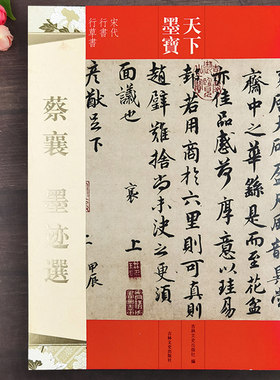 天下
墨寶
宋代
行書
行草書
蔡襄墨迹選
中之華緣是而至花盆
亦佳品感荷厚意以珪易
邦若用商於六里則可真則
趙璧難捨尚未決之更須
面議也 襄上
彥猷足下
甲辰
吉林文史出版社 編
吉林文史出版社